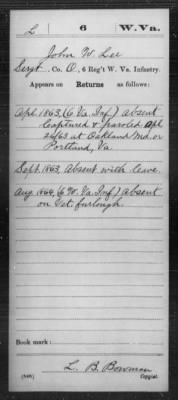 L 6 W. Va.
John W. Lee
Sergt., Co. O, 6 Reg't W. Va. Infantry.
Appears on Returns as follows:
Apl. 1863, (6 Va. Inf) absent
Captured & paroled Apl
26/63 at Oakland Md. or
Portland, Va.
Sept. 1863, Absent with leave.
Aug 1864, (6 W. Va. Inf) absent
on Vet. furlough.
Book mark:
L. B. Bowman
(546) Copyist.